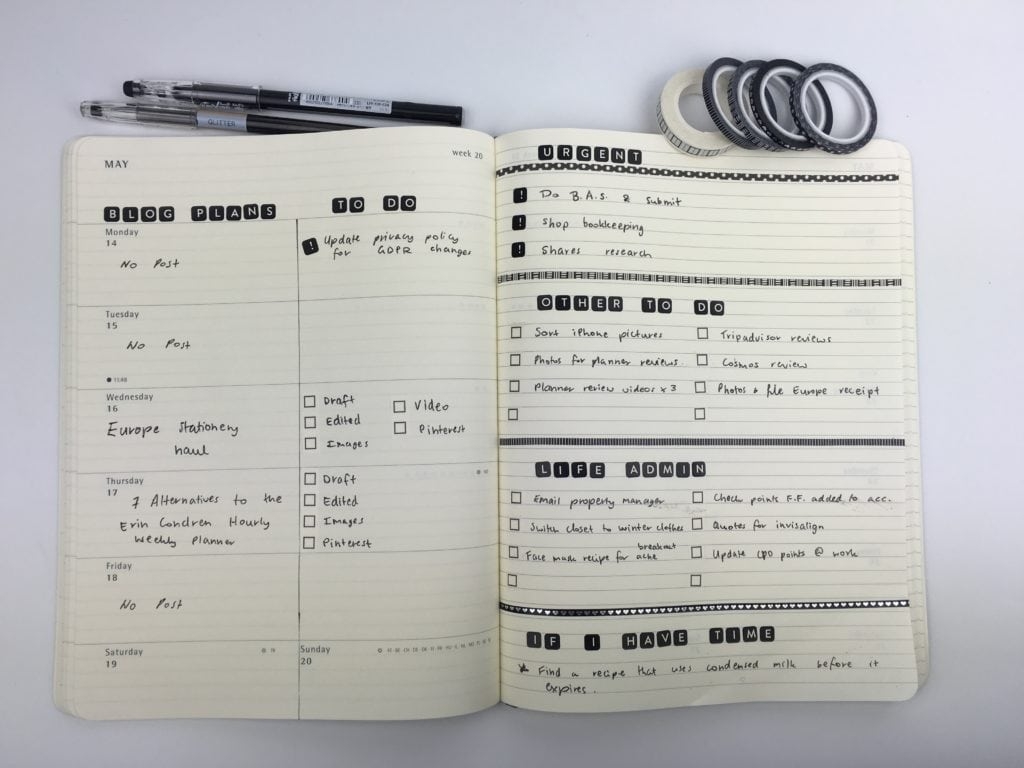 GLITTER
MAY
week 20
BLOG PLANS
TO DO
Monday
14
No Post
! Update privacy policy
for GDPR changes
Tuesday
15
No Post
Wednesday
16
Europe Stationery
haul
Draft
Edited
Images
Video
Pinterest
Thursday
17
7 Alternatives to the
Erin Condren Hourly
Weekly Planner
Draft
Edited
Images
Pinterest
Friday
18
No Post
Saturday
19
Sunday
20
URGENT
! Do B.A.S. & submit
! Shop bookkeeping
! Shares research
OTHER TO DO
Sort iPhone pictures
Tripadvisor reviews
Photos for planner reviews.
Cosmos review
Planner review videos x 3
Photos & file Europe receipt
LIFE ADMIN
Email property manager
Check points F.F. added to acc.
Switch closet to winter clothes
Quotes for invisalign
Face mask recipe for breakout acne
Update CPD points @ work
IF I HAVE TIME
Find a recipe that uses condensed milk before it
expires.